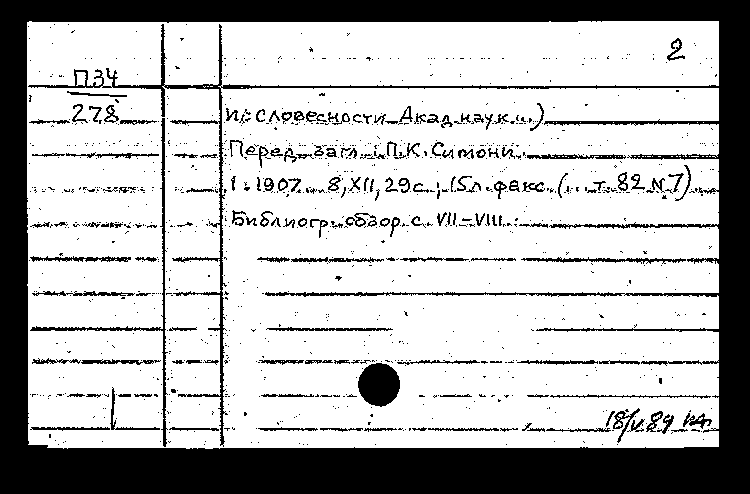 2
П34
278
и словесности Акад. наук...)
Перед загл.: П.К. Симони.
1. 1907. 8, XII, 29 с.; 15 л. факс. (... т. 82 № 7)
Библиогр. обзор с. VII–VIII.
18/V 89